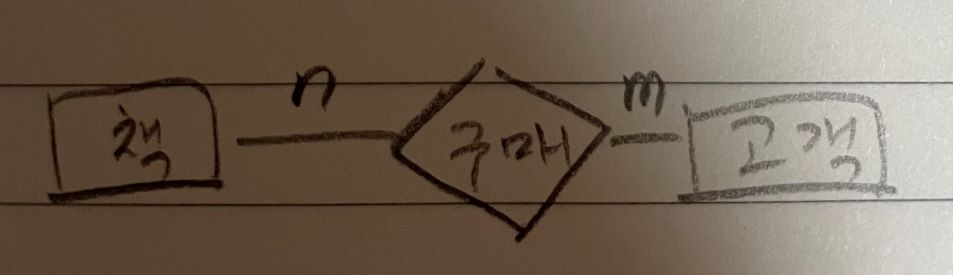 책 n 구매 m 고객